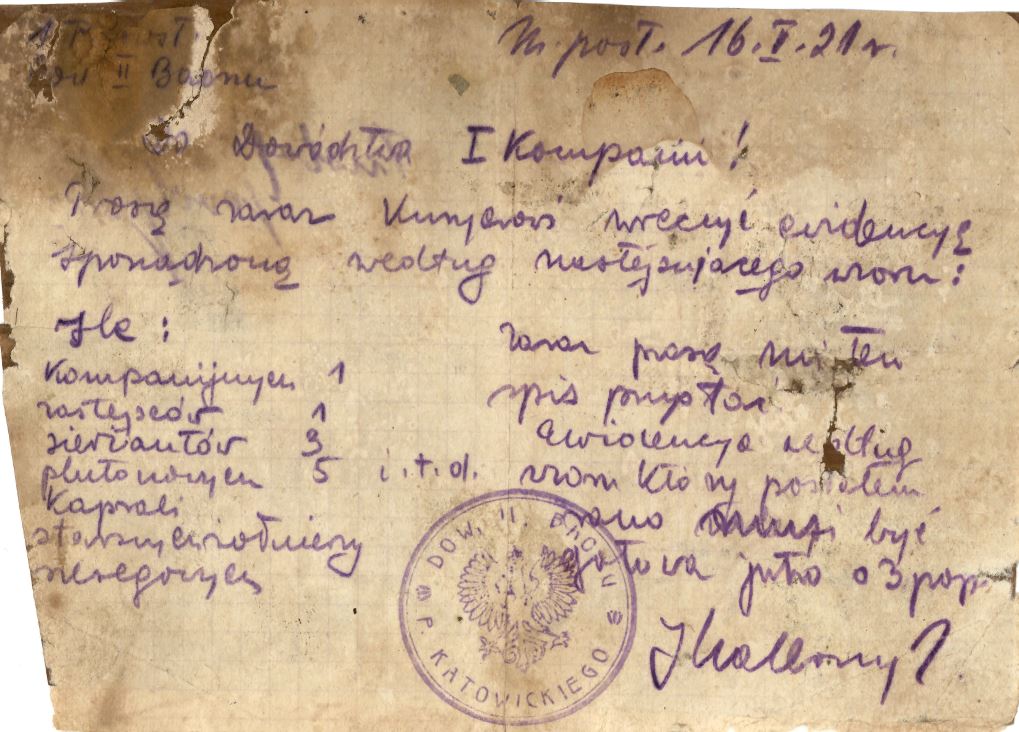 Dow II Baonu
M. post. 16.V.21 r.
Do Dowództwa I Kompanii!
Proszę zaraz wręczyć ewidencję
sporządzoną według następującego wzoru:
Ile:
Kompanijnych 1
zastępców 1
sierżantów 3
plutonowych 5 i.t.d.
Kaprali
starszych żołnierzy
szeregowych
zaraz proszę mi ten
spis przysłać
Ewidencja według
wzoru który posłałem
rano musi być
gotowa jutro o 3 pop.
DOW. II. BAONU P. KATOWICKIEGO